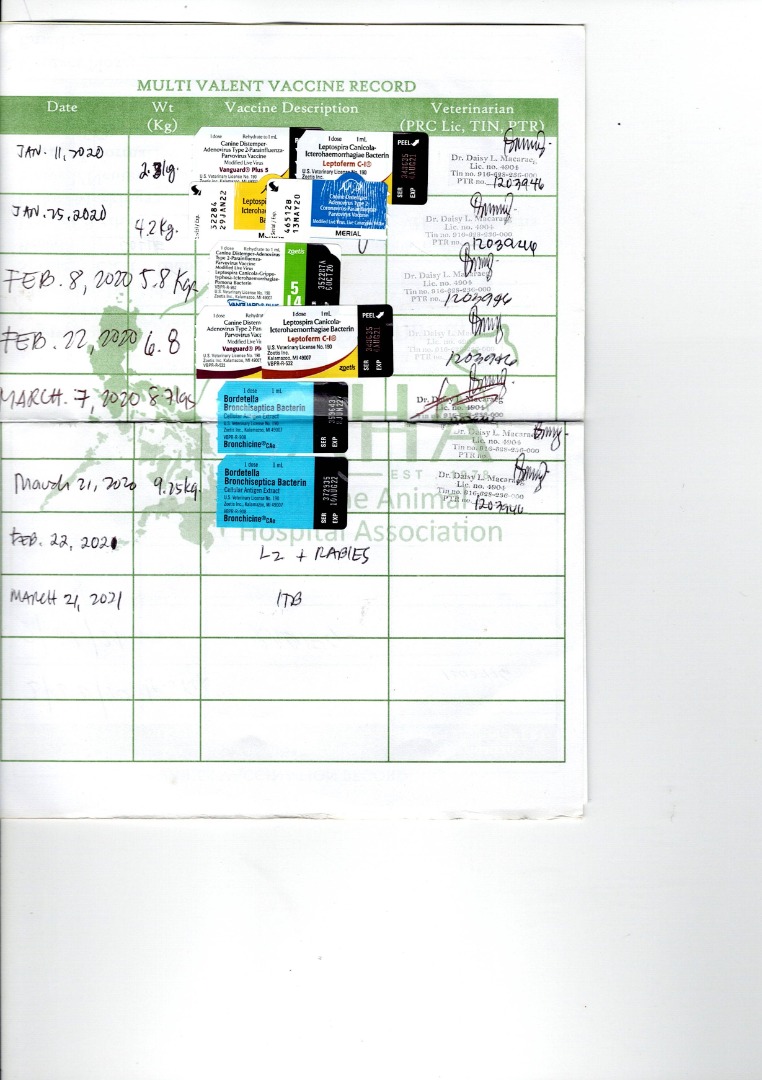 MULTI VALENT VACCINE RECORD
Date Wt (Kg) Vaccine Description Veterinarian (PRC Lic, TIN, PTR)
JAN. 11, 2020
1 dose Rehydrate to 1 mL
Canine Distemper-
Adenovirus Type 2-Parainfluenza-
Parvovirus Vaccine
Modified Live Virus
Vanguard® Plus 5
U.S. Veterinary License No. 190
1 dose 1 mL
Leptospira Canicola-
Icterohaemorrhagiae Bacterin
Leptoferm C-I®
PEEL
SER
EXP
Dr. Daisy L. Macaraeg
Lic. no. 4904
Tin no. 916-628-236-000
PTR no. 1203946
JAN. 25, 2020 4.2 Kg.
32284
29JAN22
46512B
13MAY20
Canine Distemper-
Adenovirus Type 2-
Coronavirus-Parainfluenza-
Parvovirus Vaccine
MERIAL
Dr. Daisy L. Macaraeg
Lic. no. 4904
Tin no. 916-628-236-000
PTR no. 1203946
FEB. 8, 2020 5.8 Kgs
1 dose Rehydrate to 1 mL
Canine Distemper-Adenovirus
Type 2-Parainfluenza-
Parvovirus Vaccine
Modified Live Virus
Leptospira Canicola-Grippo-
typhosa-Icterohaemorrhagiae-
Pomona Bacterin
zoetis
5
L4
352207A
Dr. Daisy L. Macaraeg
Lic. no. 4904
Tin no. 916-628-236-000
PTR no. 1203946
FEB. 22, 2020 6.8
1 dose
Canine Distem
Adenovirus Type 2-Par
Parvovirus Vacc
Modified Live V
Vanguard® Pl
U.S. Veterinary License No. 190
Zoetis Inc.
Kalamazoo, MI 49007
1 dose 1 mL
Leptospira Canicola-
Icterohaemorrhagiae Bacterin
Leptoferm C-I®
U.S. Veterinary License No. 190
Zoetis Inc.
Kalamazoo, MI 49007
VBPR-R-522
zoetis
PEEL
SER
EXP
Dr. Daisy L. Macaraeg
Lic. no. 4904
Tin no. 916-628-236-000
PTR no. 1203946
MARCH. 7, 2020
1 dose 1 mL
Bordetella
Bronchiseptica Bacterin
Cellular Antigen Extract
U.S. Veterinary License No. 190
Zoetis Inc.
Kalamazoo, MI 49007
Bronchicine®CAe
SER
EXP
Dr. Daisy L. Macaraeg
Lic. no. 4904
Dr. Daisy L. Macaraeg
Lic. no. 4904
Tin no. 916-628-236-000
PTR no.
March 21, 2020 9.25kg.
1 dose 1 mL
Bordetella
Bronchiseptica Bacterin
Cellular Antigen Extract
U.S. Veterinary License No. 190
Zoetis Inc.
Kalamazoo, MI 49007
Bronchicine®CAe
SER
EXP
Dr. Daisy L. Macaraeg
Lic. no. 4904
Tin no. 916-628-236-000
PTR no. 1203946
EST 1978
Animal
Hospital Association
FEB. 22, 2021 L2 + RABIES
MARCH 21, 2021 ITB